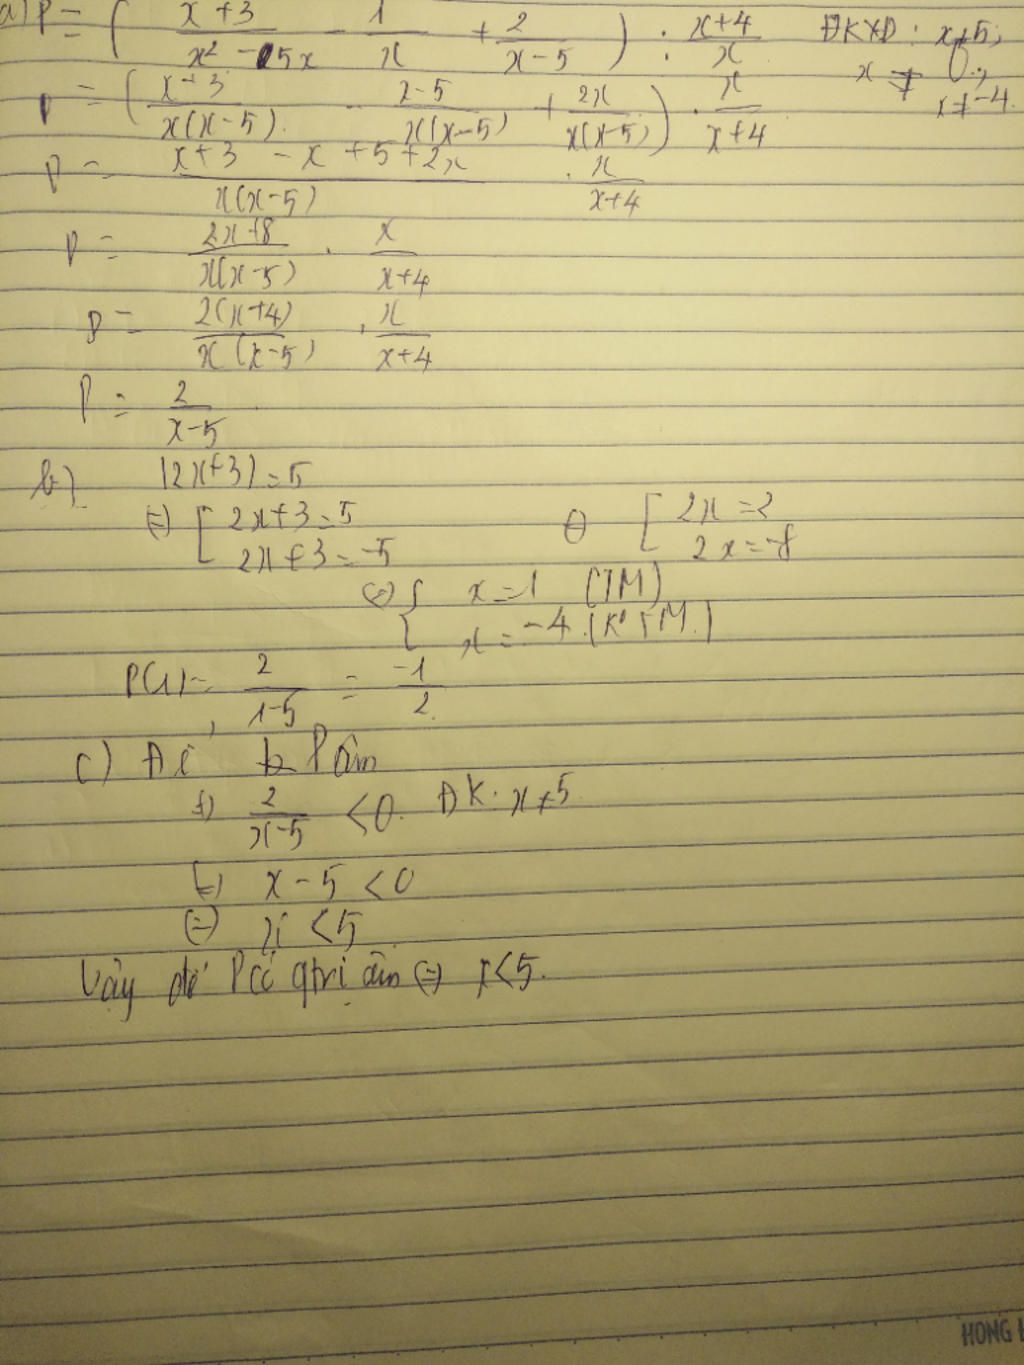 a) P = ( x+3 / x² - 5x - 1 / x + 2 / x-5 ) : x+4 / x ĐKXĐ: x≠5; x ≠ 0; x≠-4.
P = ( x+3 / x(x-5) - x-5 / x(x-5) + 2x / x(x-5) ) . x / x+4
P = x+3 - x + 5 + 2x / x(x-5) . x / x+4
P = 2x+8 / x(x-5) . x / x+4
P = 2(x+4) / x(x-5) . x / x+4
P = 2 / x-5
b) |2x+3| = 5
⇔ [ 2x+3 = 5 ⇔ [ 2x = 2
2x+3 = -5 2x = -8
⇔ { x = 1 (TM)
x = -4 (K° TM.)
P(1) = 2 / 1-5 = -1 / 2
c) Để P âm
⇔ 2 / x-5 < 0. ĐK: x≠5
⇔ x - 5 < 0
⇔ x < 5
Vậy để P có gtrị âm ⇔ x<5.
HONG